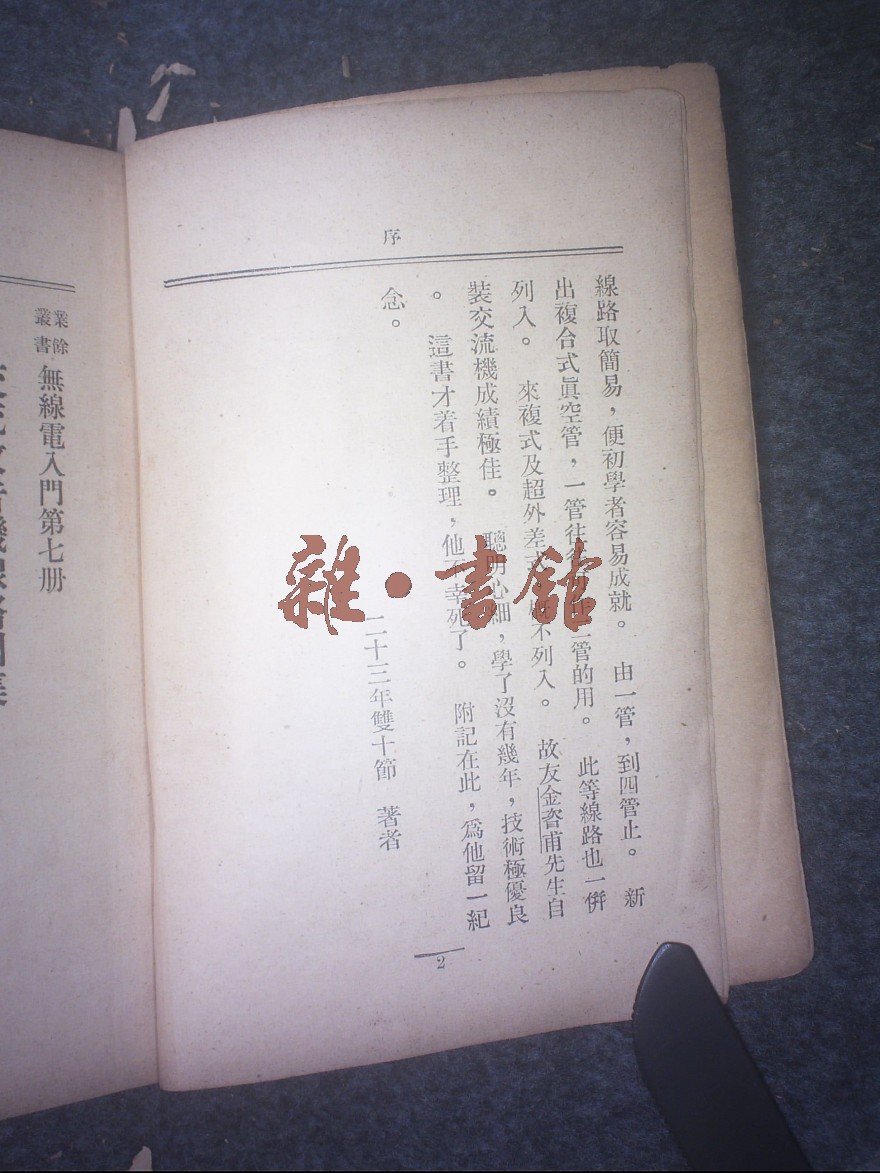 序
線路取簡易，便初學者容易成就。　由一管，到四管止。　新
出複合式眞空管，一管往二管的用。　此等線路也一併
列入。　來複式及超外差不列入。　故友金資甫先生自
裝交流機成績極佳。　聰明心細，學了沒有幾年，技術極優良
。　這書才着手整理，他不幸死了。　附記在此，爲他留一紀
念。
二十三年雙十節　著者
2
業餘
叢書
無線電入門第七册
雜·書館